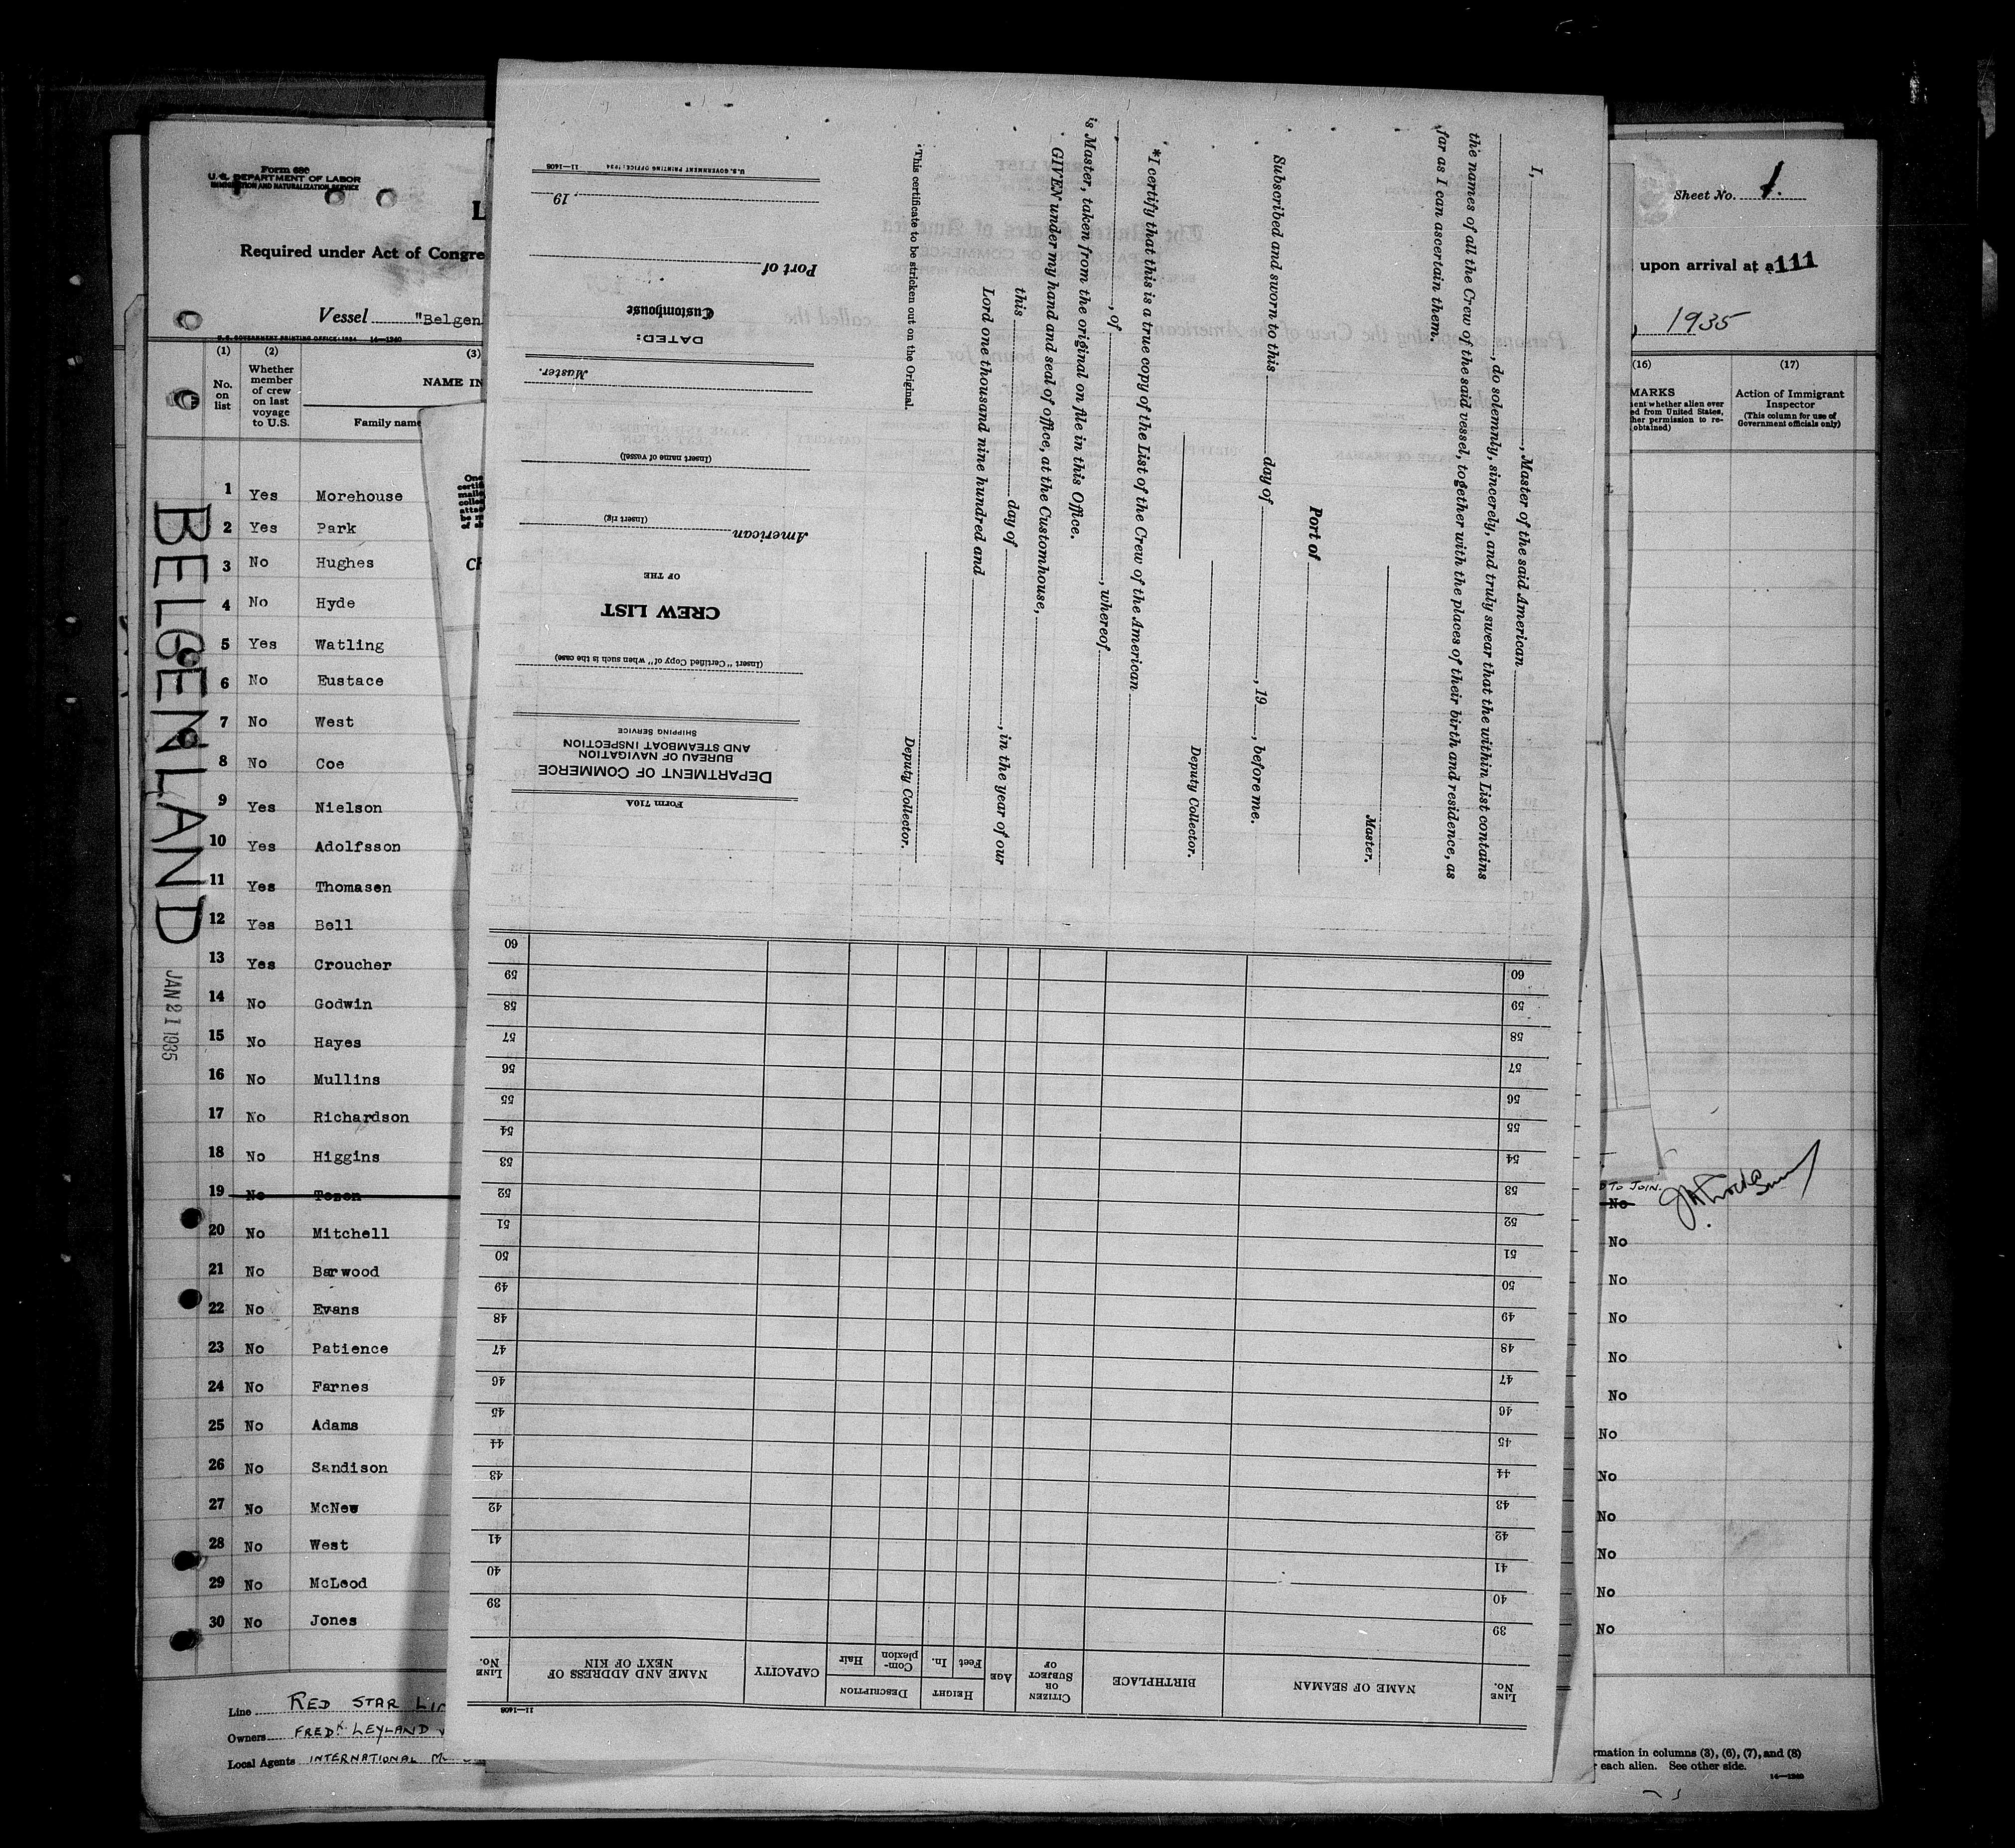 Form 680
U. S. DEPARTMENT OF LABOR
IMMIGRATION AND NATURALIZATION SERVICE
L
Required under Act of Congre
Vessel "Belgen
U. S. GOVERNMENT PRINTING OFFICE: 1934 14—1240
(1) (2) (3)
No. on list
Whether member of crew on last voyage to U.S.
NAME IN
Family name
1 Yes Morehouse
2 Yes Park
3 No Hughes
4 No Hyde
5 Yes Watling
6 No Eustace
7 No West
8 No Coe
9 Yes Nielson
10 Yes Adolfsson
11 Yes Thomasen
12 Yes Bell
13 Yes Croucher
14 No Godwin
15 No Hayes
16 No Mullins
17 No Richardson
18 No Higgins
19 No Tozon
20 No Mitchell
21 No Barwood
22 No Evans
23 No Patience
24 No Farnes
25 No Adams
26 No Sandison
27 No McNew
28 No West
29 No McLeod
30 No Jones
BELGENLAND
JAN 21 1935
Line RED STAR LIN
Owners FREDK LEYLAND
Local Agents INTERNATIONAL M
One
certif
maile
colle
attac
be m
of s
Ch
I, , Master of the said American
, do solemnly, sincerely, and truly swear that the within List contains
the names of all the Crew of the said vessel, together with the places of their birth and residence, as
far as I can ascertain them.
Master.
Port of
Subscribed and sworn to this day of , 19 , before me.
Deputy Collector.
*I certify that this is a true copy of the List of the Crew of the American
, of , whereof
is Master, taken from the original on file in this Office.
GIVEN under my hand and seal of office, at the Customhouse,
this day of , in the year of our
Lord one thousand nine hundred and
Deputy Collector.
*This certificate to be stricken out on the Original.
Form 710A
DEPARTMENT OF COMMERCE
BUREAU OF NAVIGATION
AND STEAMBOAT INSPECTION
SHIPPING SERVICE
(Insert "Certified Copy of" when such is the case)
CREW LIST
OF THE
American
(Insert rig)
(Insert name of vessel)
Master.
DATED:
Customhouse
Port of
, 19
U.S. GOVERNMENT PRINTING OFFICE: 1934 11—1408
11—1408
LINE No.
NAME OF SEAMAN
BIRTHPLACE
CITIZEN OR SUBJECT OF
AGE
HEIGHT
Feet In.
DESCRIPTION
Complexion Hair
CAPACITY
NAME AND ADDRESS OF NEXT OF KIN
LINE No.
39 39
40 40
41 41
42 42
43 43
44 44
45 45
46 46
47 47
48 48
49 49
50 50
51 51
52 52
53 53
54 54
55 55
56 56
57 57
58 58
59 59
60 60
Sheet No. 1.
upon arrival at a 111
, 1935
(16) (17)
MARKS
ent whether alien ever
ed from United States,
her permission to re-
obtained)
Action of Immigrant Inspector
(This column for use of Government officials only)
D TO JOIN.
No
No
No
No
No
No
No
No
No
No
No
No
rmation in columns (3), (6), (7), and (8)
r each alien. See other side.
14—1240